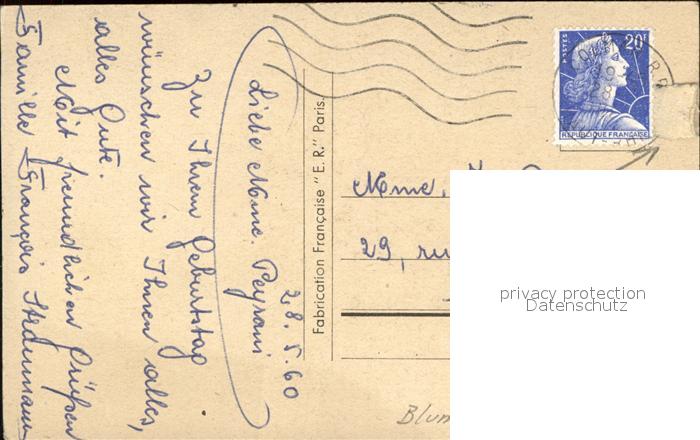 28.5.60
Liebe Mme. Peyrani
Zu Ihrem Geburtstag
wünschen wir Ihnen alles,
alles Gute.
Mit freundlichen Grüßen
Familie François
Fabrication Française "E. R." Paris.
POSTES
20F
REPUBLIQUE FRANÇAISE
Mme.
29, ru
Blum
privacy protection
Datenschutz